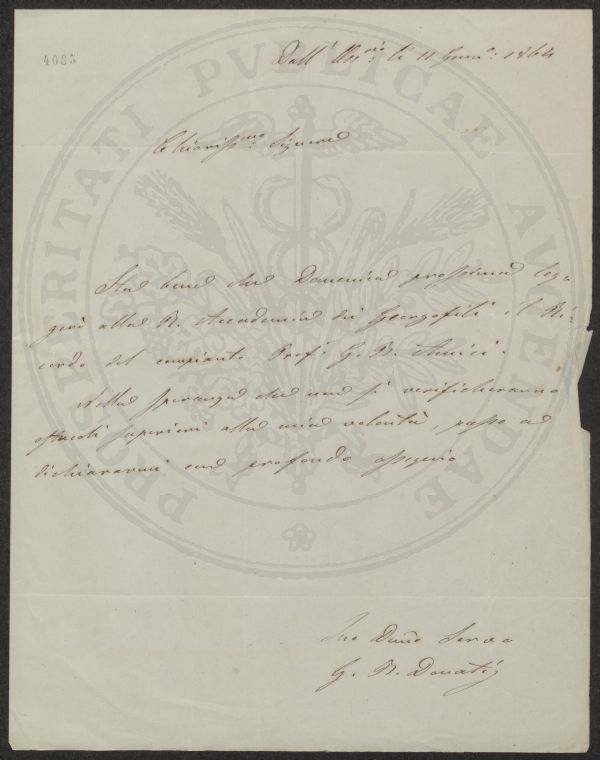 4085
Dall' Oss.rio li 11 Genn.o: 1864
Chiariss.mo Signore
Sta bene che Domenica prossima leg=
gerò alla R. Accademia dei Georgofili il Ri=
cordo del compianto Prof. G. B. Amici.
Nella speranza che non si verificheranno
ostacoli superiori alla mia volontà, passo a
dichiararmi con profondo ossequio
Suo Dmo Servo
G. B. Donati
PROSPERITATI PUBLICAE AUGENDAE